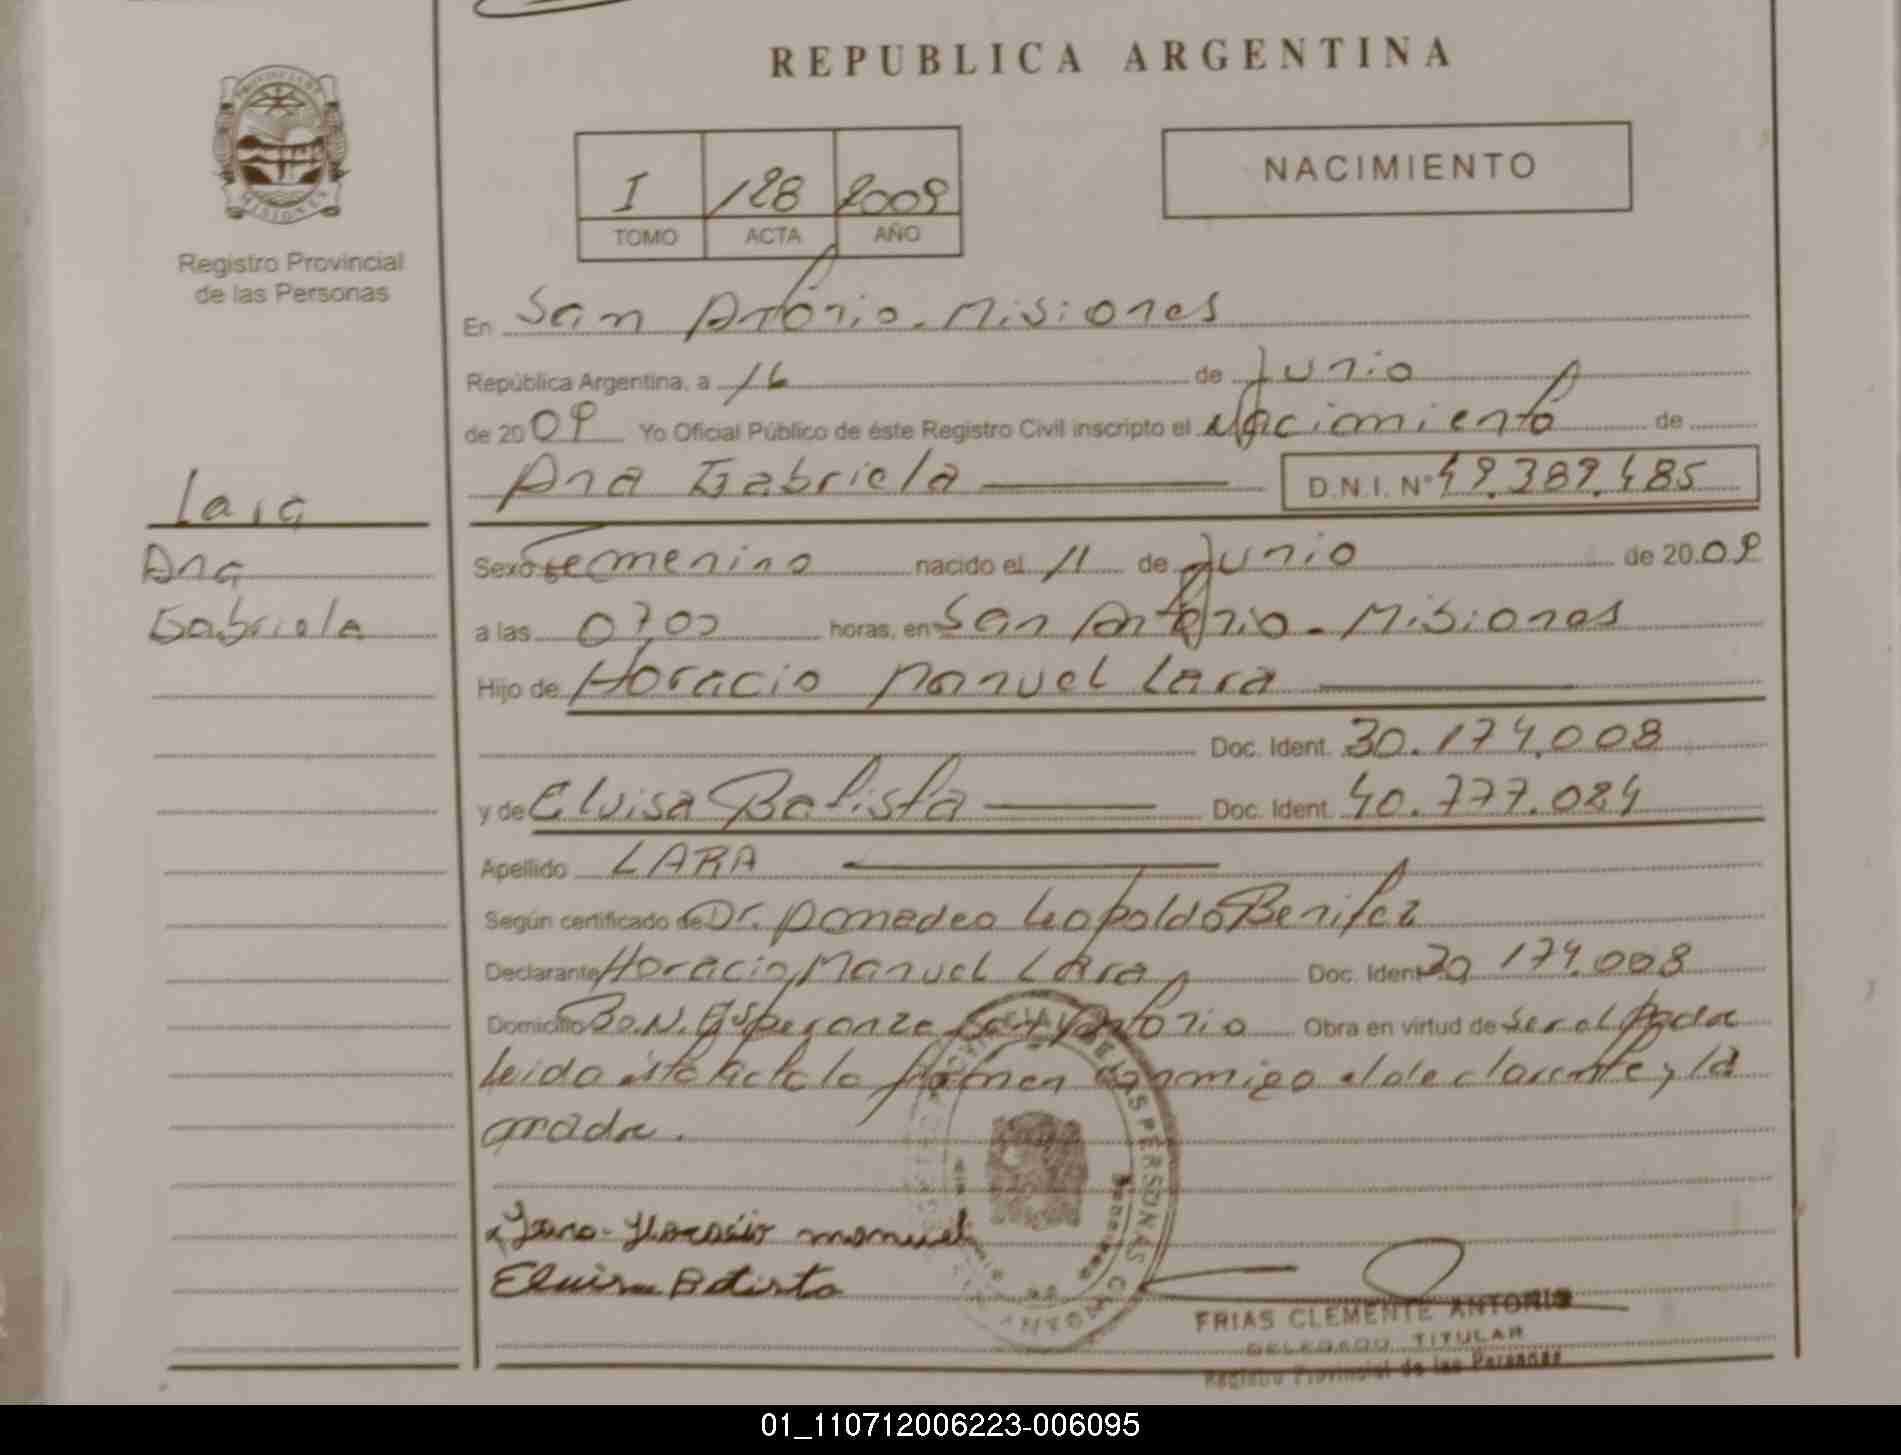 REPUBLICA ARGENTINA
PROVINCIA DE
MISIONES
Registro Provincial
de las Personas
I 128 2009
TOMO ACTA AÑO
NACIMIENTO
En San Antonio - Misiones
República Argentina, a 16 de Junio
de 2009 Yo Oficial Público de éste Registro Civil inscripto el Nacimiento de
Ana Gabriela D.N.I. Nº 49.389.485
Lara
Ana
Gabriela
Sexo Femenino nacido el 11 de Junio de 20.09
a las 07,00 horas, en San Antonio - Misiones
Hijo de Horacio Manuel Lara
Doc. Ident. 30.174.008
y de Eluisa Batista Doc. Ident. 40.777.084
Apellido LARA
Según certificado de Dr. Leopoldo Benitez
Declarante Horacio Manuel Lara Doc. Ident. 30.174.008
Domicilio Bo. N. Esperanza San Antonio Obra en virtud de ser el Padre
leida firman conmigo el declarante y la
madre.
Lara - Horacio manuel
Eluisa Batista
DE LAS PERSONAS
FRIAS CLEMENTE ANTONIO
DELEGADO TITULAR
Registro Provincial de las Personas
01_110712006223-006095